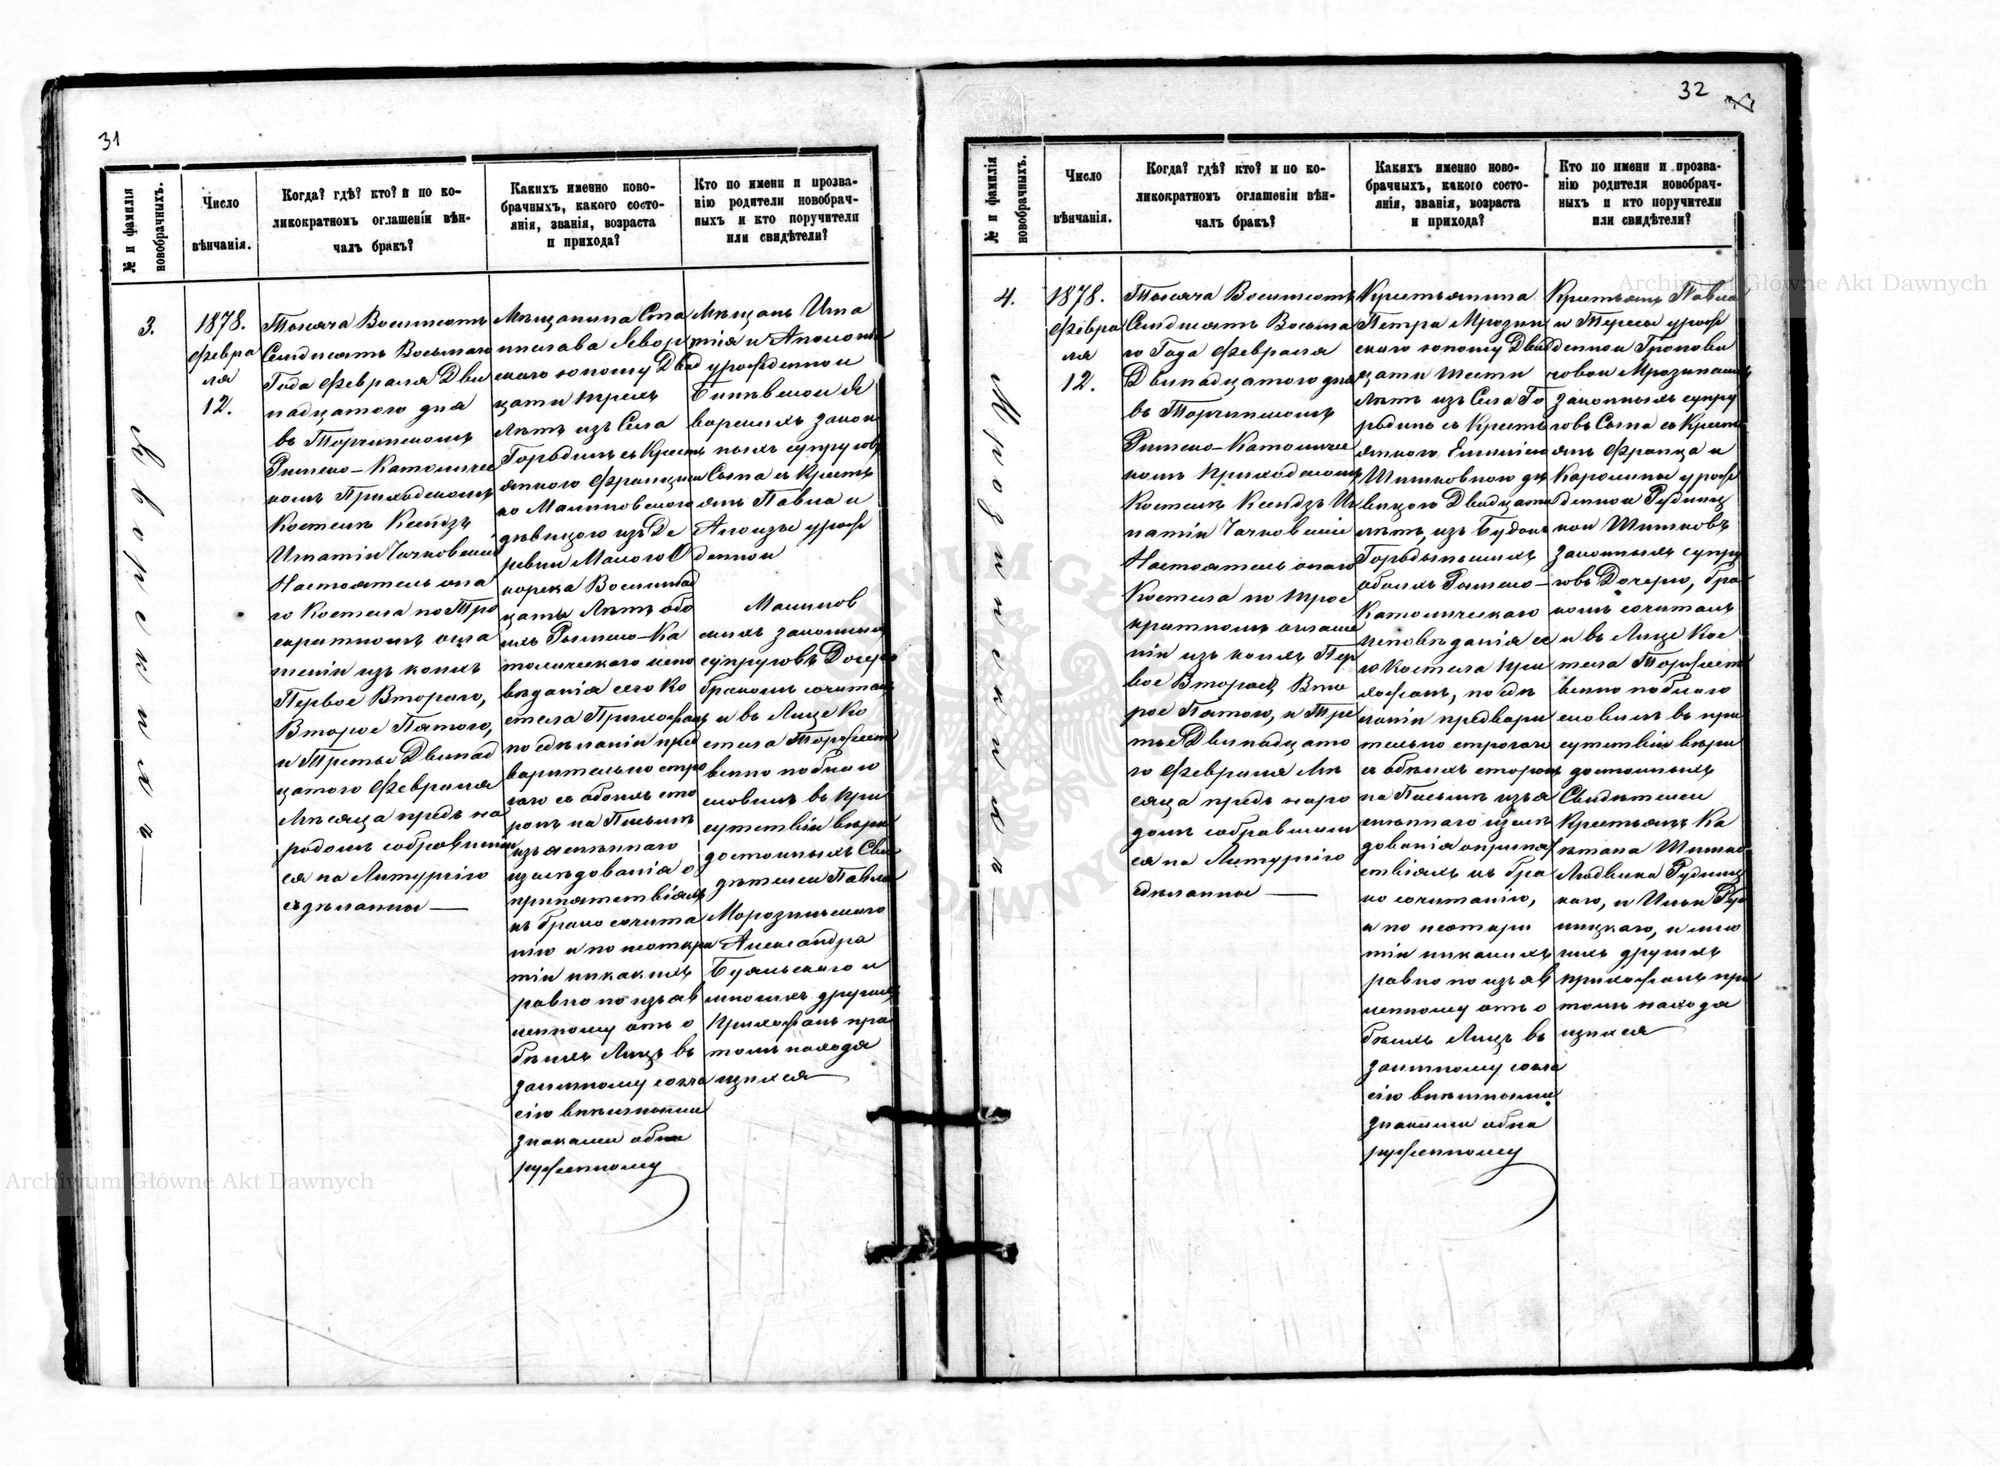 31
№ и фамилія новобрачныхъ.
Число
вѣнчанія.
Когда? гдѣ? кто? и по ко-
ликократномъ оглашеніи вѣн-
чалъ бракъ?
Какихъ именно ново-
брачныхъ, какого состо-
янія, званія, возраста
и прихода?
Кто по имени и прозва-
нію родители новобрач-
ныхъ и кто поручители
или свидѣтели?
3.
1878.
Февра
ля
12.
Тысяча Восемьсотъ
Семдисятъ Восьмаго
Года Февраля Две
надцатого дня
въ Торчинскомъ
Римско-Католичес
комъ Приходскомъ
Костелѣ Ксендзъ
Игнатій Чачковскій
Настоятель она
го Костела по Тро
екратномъ огла
шеніи изъ коихъ
Первое Второго,
Второе Пятого,
и Третье Двенад
цатого Февраля
Мѣсяца предъ на
родомъ собравшим
ся на Литургію
сдѣланны
Мѣщанина Ста
нислава Явор
ского юношу Двад
цати трехъ
лѣтъ изъ Села
Городинъ съ Крест
янкою Францишк
ю Малиновского
дѣвицою изъ Де
ревни Малого О
корска Восемнад
цать Лѣтъ обо
ихъ Римско-Ка
толического испо
вѣданія сего Ко
стела Прихожан
по сдѣланіи пред
варительно стро
гого съ обоихъ сто
ронъ на Письмѣ
изъясненнаго
изслѣдованія о
препятствіяхъ
къ брако сочета
нію и по неоткры
тіи никакихъ
равно по изъяв
ленному отъ о
бѣихъ Лицъ въ
заимному согла
сію внѣшными
знаками обна
руженному
Мѣщанъ Игна
тія и Аполоніи
урожденной
Яворскихъ закон
ныхъ супруговъ
Сына съ Крест
янъ Павла и
Алоизы урож
денной
Малинов
скихъ законныхъ
супруговъ Дочерю
бракомъ сочеталъ
и въ Лице Ко
стела Торжест
венно поблаго
словилъ въ при
сутствіи вѣро
достойныхъ Сви
дѣтелей Павла
Морозинского
Александра
Буяльского и
многихъ другихъ
прихожанъ при
томъ находя
щихся
Яворскихъ
32
№ и фамилія новобрачныхъ.
Число
вѣнчанія.
Когда? гдѣ? кто? и по ко-
ликократномъ оглашеніи вѣн-
чалъ бракъ?
Какихъ именно ново-
брачныхъ, какого состо-
янія, званія, возраста
и прихода?
Кто по имени и прозва-
нію родители новобрач-
ныхъ и кто поручители
или свидѣтели?
4.
1878.
Февра
ля
12.
Тысяча Восемьсотъ
Семдисятъ Восьма
го Года Февраля
Двенадцатого дня
въ Торчинскомъ
Римско-Католичес
комъ Приходскомъ
Костелѣ Ксендзъ Иг
натій Чачковскій
Настоятель оного
Костела по трое
кратномъ оглаше
ніи изъ коихъ Пер
вое Второго, Вто
рое Пятого, и Тре
тье Двенадцато
го Февраля Мѣ
сяца предъ наро
домъ собравшим
ся на Литургію
сдѣланны
Крестьянина
Петра Мрозин
ского юношу Двад
цати шести
лѣтъ изъ Села Го
родинъ съ Крест
янкою Емилією
Шишковною дѣ
вицою Двадцати
лѣтъ, изъ Будокъ
обоихъ Римско-
Католического
исповѣданія се
го Костела при
хожанъ, по сдѣ
ланіи предвари
тельно строгого
съ обѣихъ сторонъ
на Письмѣ изъя
сненнаго изслѣ
дованія о препят
ствіяхъ къ бра
ко сочетанію,
и по неоткры
тіи никакихъ
равно по изъяв
ленному отъ о
бѣихъ Лицъ въ
заимному согла
сію внѣшными
знаками обна
руженному
Крестьянъ Павла
и Тересы урож
денной
Мрозинскихъ
законныхъ супру
говъ Сына съ Крест
янъ Франца и
Каролины урож
денной Рудниц
кой Шишковъ
законныхъ супру
говъ Дочерю, бра
комъ сочеталъ
и въ Лице Кос
тела Торжест
венно поблаго
словилъ въ при
сутствіи вѣро
достойныхъ
Свидѣтелей
Крестьянъ Ка
етана Шишки
Людвика Рудниц
кого, и Ильи Руд
ницкаго, и мно
гихъ другихъ
прихожанъ при
томъ находя
щихся
Мрозинскихъ
Archiwum Główne Akt Dawnych
Archiwum Główne Akt Dawnych